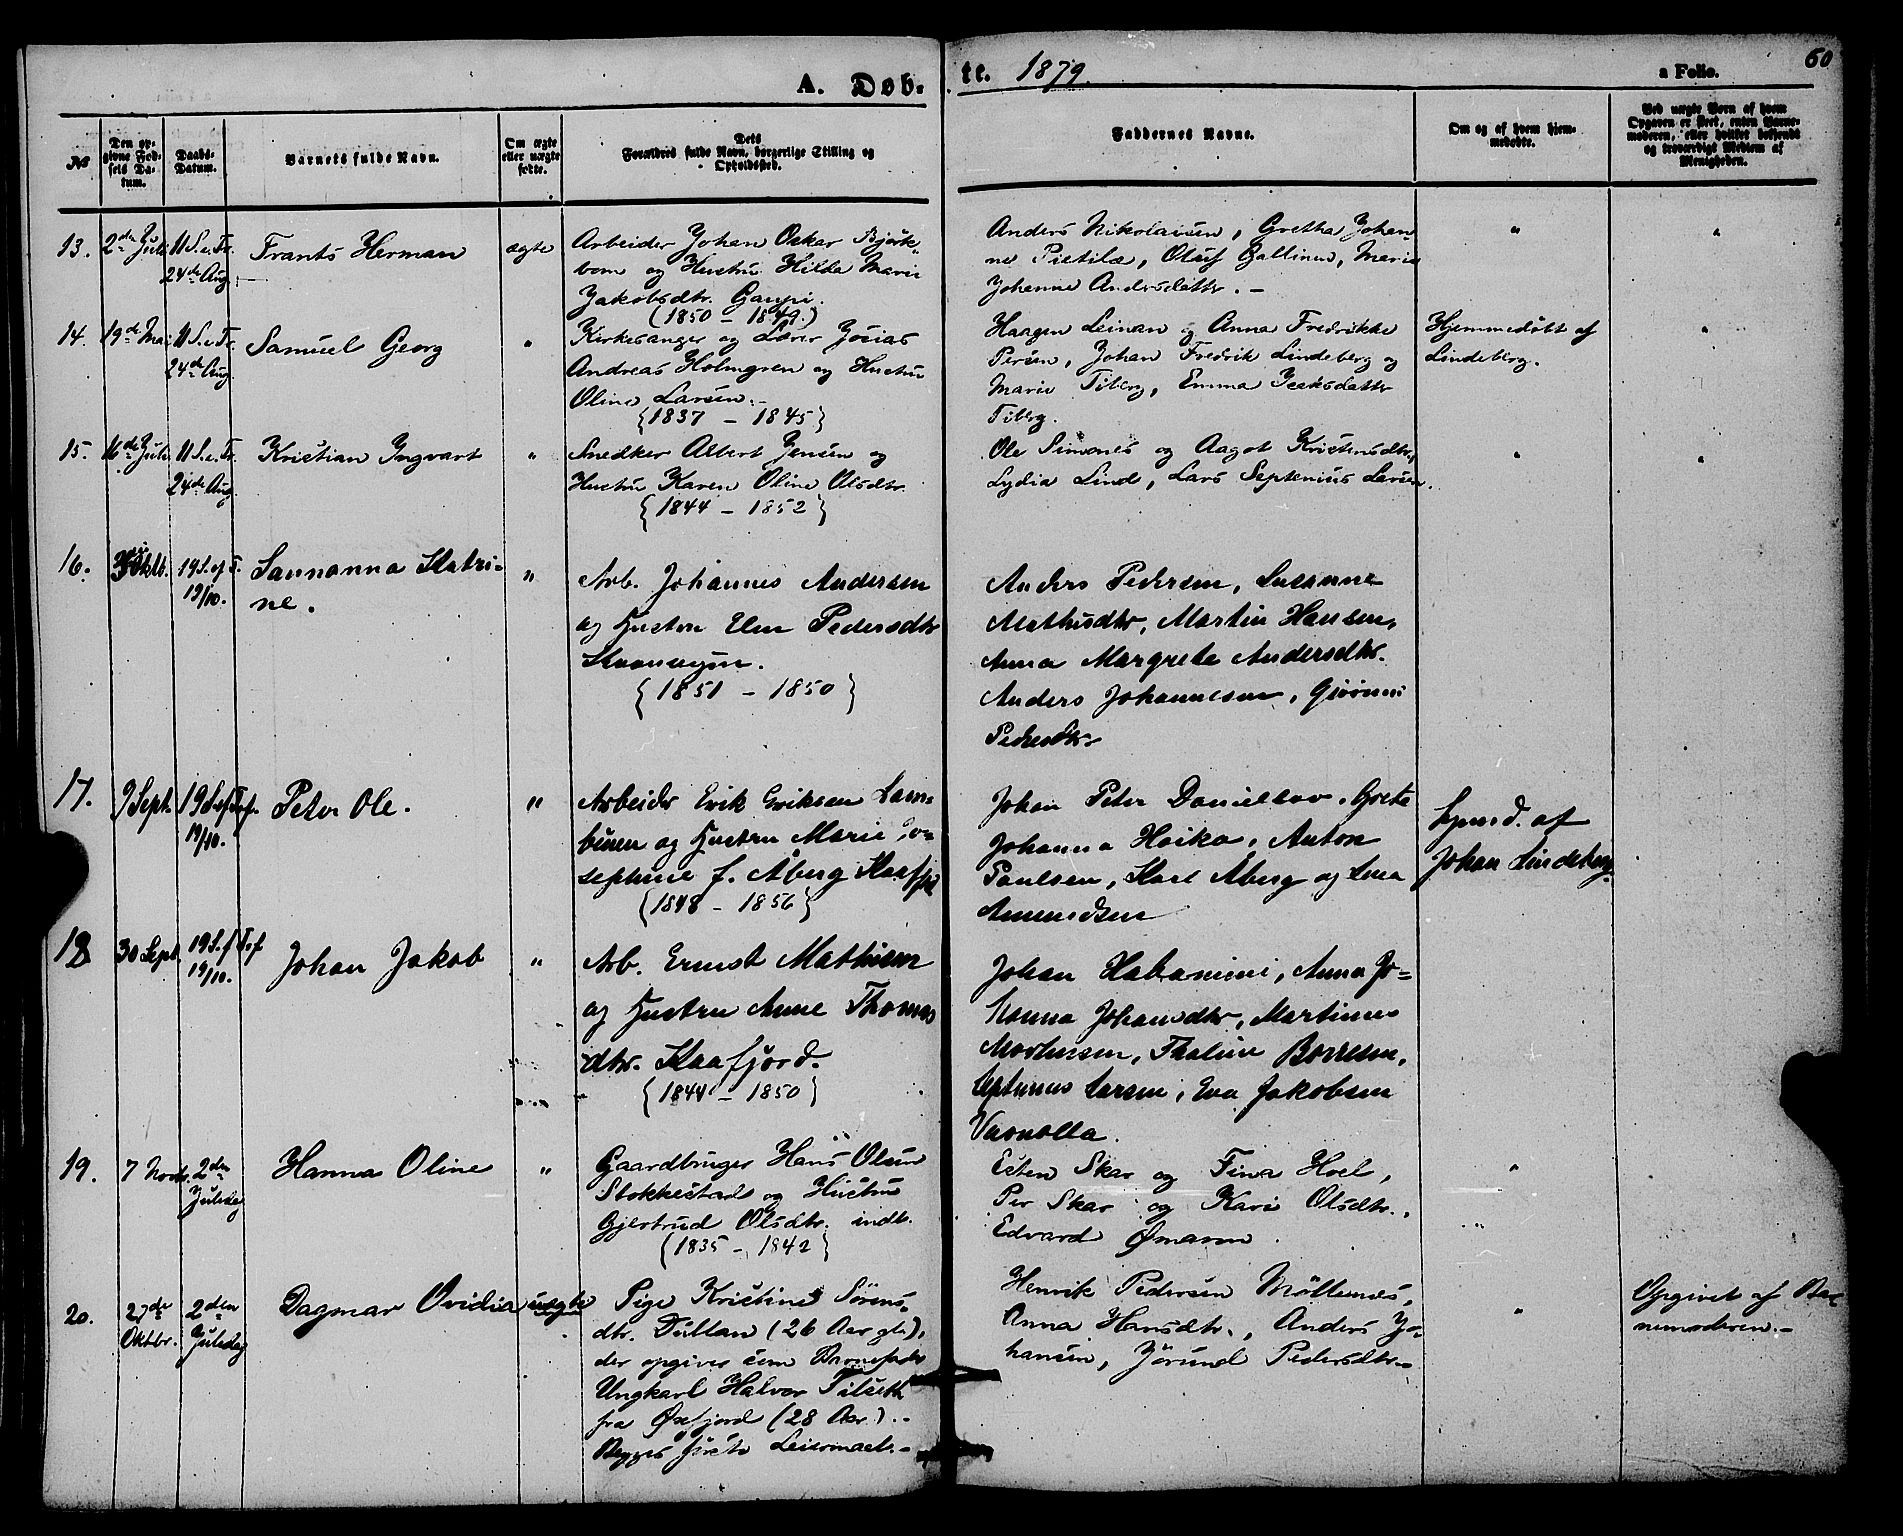 A. Døb-
te. 1879.
a Folio.
60
No
Den op-
givne Fød-
sels Da-
tum.
Daabs-
Datum.
Barnets fulde Navn.
Om ægte
eller uægte
fødte.
Dets
Forældres fulde Navn, borgerlige Stilling og
Opholdssted.
Faddernes Navne.
Om og af hvem hjem-
medøbte.
Ved uægte Børn af hvem
Opgaven er skeet, enten Barne-
moderen, eller hvilket bekjendt
og troværdigt Medlem af
Menigheden.
13. 2de Juli 11 S. e. Tr.
24de Aug.
Frants Herman
ægte
Arbeider Johan Oskar Bjørk-
bom og Hustru Hilda Marie
Jakobsdtr. Gaupi.
(1850 - 1849.)
Anders Nikolaisen, Gretha Johan-
ne Pietilæ, Oluf Ballinen, Marie
Johanne Andersdatter. -
"
"
14. 19de Mai 11 S. e. Tr.
24de Aug.
Samuel Georg
"
Kirkesanger og Lærer Josias
Andreas Holmgren og Hustru
Oline Larsen. -
{1837 - 1845}
Haagen Leinan og Anna Fredrikke
Persen, Johan Fredrik Lindeberg og
Marie Tiberg, Emma Isaksdatter
Tiberg.
Hjemmedøbt af
Lindeberg.
"
15. 16de Juli 11 S. e. Tr.
24de Aug.
Kristian Ingvart
"
Snedker Albert Jensen og
Hustru Karen Oline Olsdtr.
{1844 - 1852}
Ole Simones og Aagot Kristensdtr.,
Lydia Lind, Lars Septenius Larsen.
"
"
16. Oktb. 19 S. ef T.
19/10.
Sannanna Katri-
ne.
"
Arb. Johannes Andersen
og Hustru Elen Pedersdtr
{1851 - 1850}
Anders Pedersen, Susanne
Mathisdtr, Martin Hansen,
Anna Margrete Andersdtr.
Anders Johannesen,
Pedersdtr
17. 9 Sept. 19 S. ef Tref.
19/10.
Peter Ole.
"
Arbeider Erik Eriksen Lam-
binen og Hustru Marie Jo-
sephine f. Åberg Kaafjrd
{1848 - 1856}
Johan Peter Daniellov, Grete
Johanna Heika, Anton
Paulsen, Karl Åberg og Lina
Amundsen
Hjemd. af
Johan Lindeberg.
18 30 Sept. 19 S. f Tref
19/10.
Johan Jakob
"
Arb. Ernst Mathisen
og Hustru Anne Thomas
dtr. Kaafjord.
{1844 - 1850}
Johan Habanimi, Anna Jo-
hanna Johansdtr, Martinus
Mortensen, Thaline Borresen,
Septimus Larsen, Eva Jakobsen
19. 7 Novbr. 2den
Juledag
Hanna Oline
"
Gaardbruger Hans Olsen
Stokkestad og Hustru
Gjertrud Olsdtr. indt.
{1835 - 1842}
Esten Skar og Fina Hoel,
Per Skar og Kari Olsdtr.,
Edvard
"
20. 27de
Oktbr.
2den
Juledag
Dagmar Ovidia
uægte
Pige Kristine Sörens-
dtr. Tullan (26 Aar gl.),
der opgiver som Barnefader
Ungkarl Halvor Tilseth
fra Öxfjord (28 Aar). -
Begges förste Leiermaal. -
Henrik Pedersen Möllenes,
Anna Hansdtr., Anders Jo-
hansen, Jörund Pedersdtr. -
"
Opgivet af Bar-
nemoderen. -